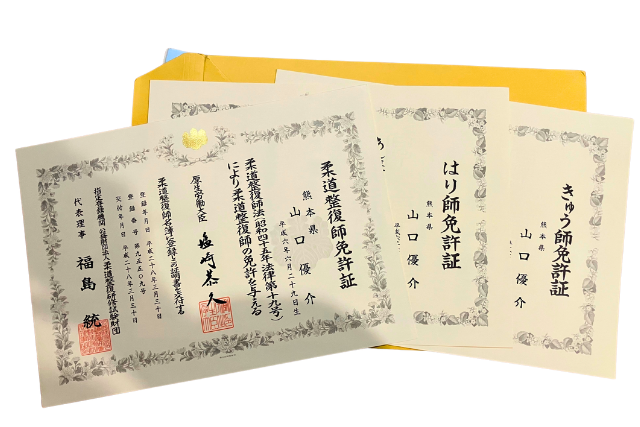 柔道整復師免許証
熊本県
山口優介
平成六年六月二十九日生
柔道整復師法(昭和四十五年法律第十九号)
により柔道整復師の免許を与える
厚生労働大臣 塩崎恭久
柔道整復師名簿に登録したことの証明書を交付する
登録年月日 平成二十八年三月三十日
交付年月日 平成二十八年三月三十日
代表理事 福島統
はり師免許証
熊本県
山口優介
きゅう師免許証
熊本県
山口優介